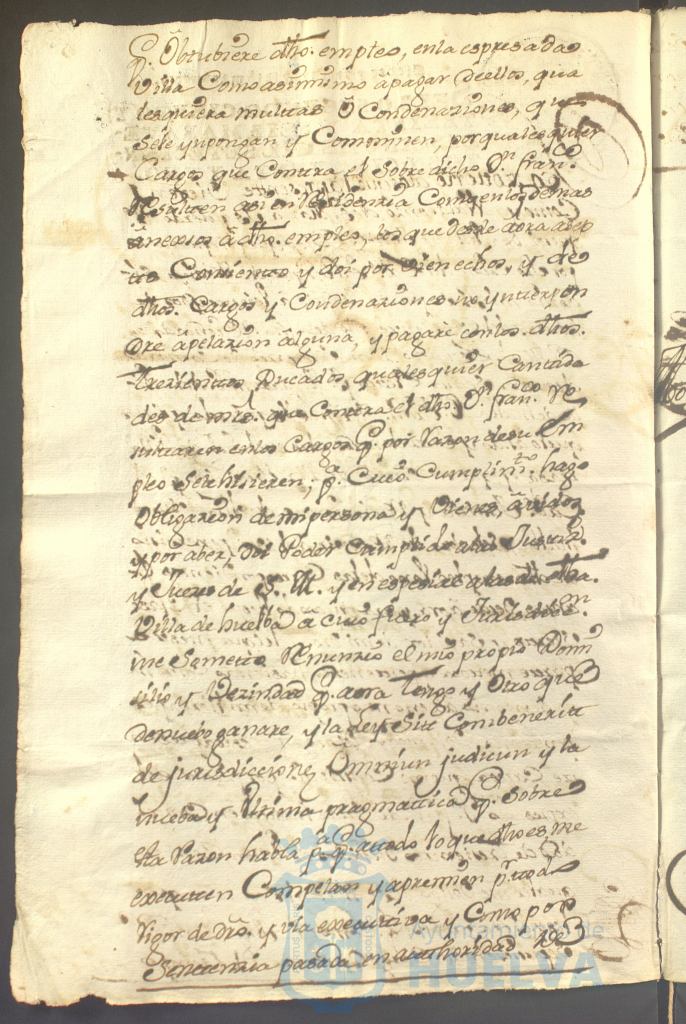 q. obtubiere dho. empleo, en la espresadas
Villa Como asimismo a pagar de ellos, qua
lesquiera multas o Condenaziones, que
sele ynpongan y Conminen, por qualesquier
Cargos que Contra el sobre dicho Dn. franco.
resulten asi en Residenzia Como en los demas
anexsos a dho. empleo, los que desde aora azep
to Consiento y doi por bien echos, y de
dhos. Cargos y Condenaziones no ynterpon
dre apelazion alguna, y pagare en los dhos.
trezientos Ducados, qualesquier Cantida
des de mrs. que Contra el dho Dn. franco. Re
sultaren en los Cargos q. por Razon de su Em
pleo sele hisieren; pa. Cuio Cumplimto. hago
Obligazion de mi persona y Vienes, auidos
y por aber, Doi Poder Cumplido a las Justizs.
y Juezes de S. M. y en espesial a las de dha.
Villa de huelba a cuio fuero y Jurisdizn.
me Someto Renunzio el mio propio Domi
silio y Vezindad q. aora tengo y otro que
de nuebo ganare, y la ley Sit Combenerit
de jurisdiccione Omnium judicun y la
nueba y Ultima pragmattica q. sobre
esta Razon habla pa. q. a todo lo que dho es me
executen Compelan y apremien p. todo
Vigor de dro. y via executiva y Como por
Sentenzia pasada en authoridad de
Ayuntamiento de
HUELVA